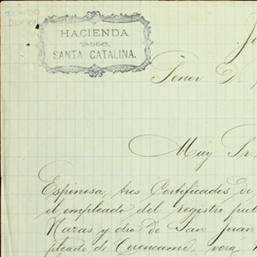 HACIENDA
DE
SANTA CATALINA.
Señor D.
Muy Sr.
Espinosa, tres Certificados de
el empleado del registro
Nazas y otro de San Juan
pleado de Cuencamé, verá